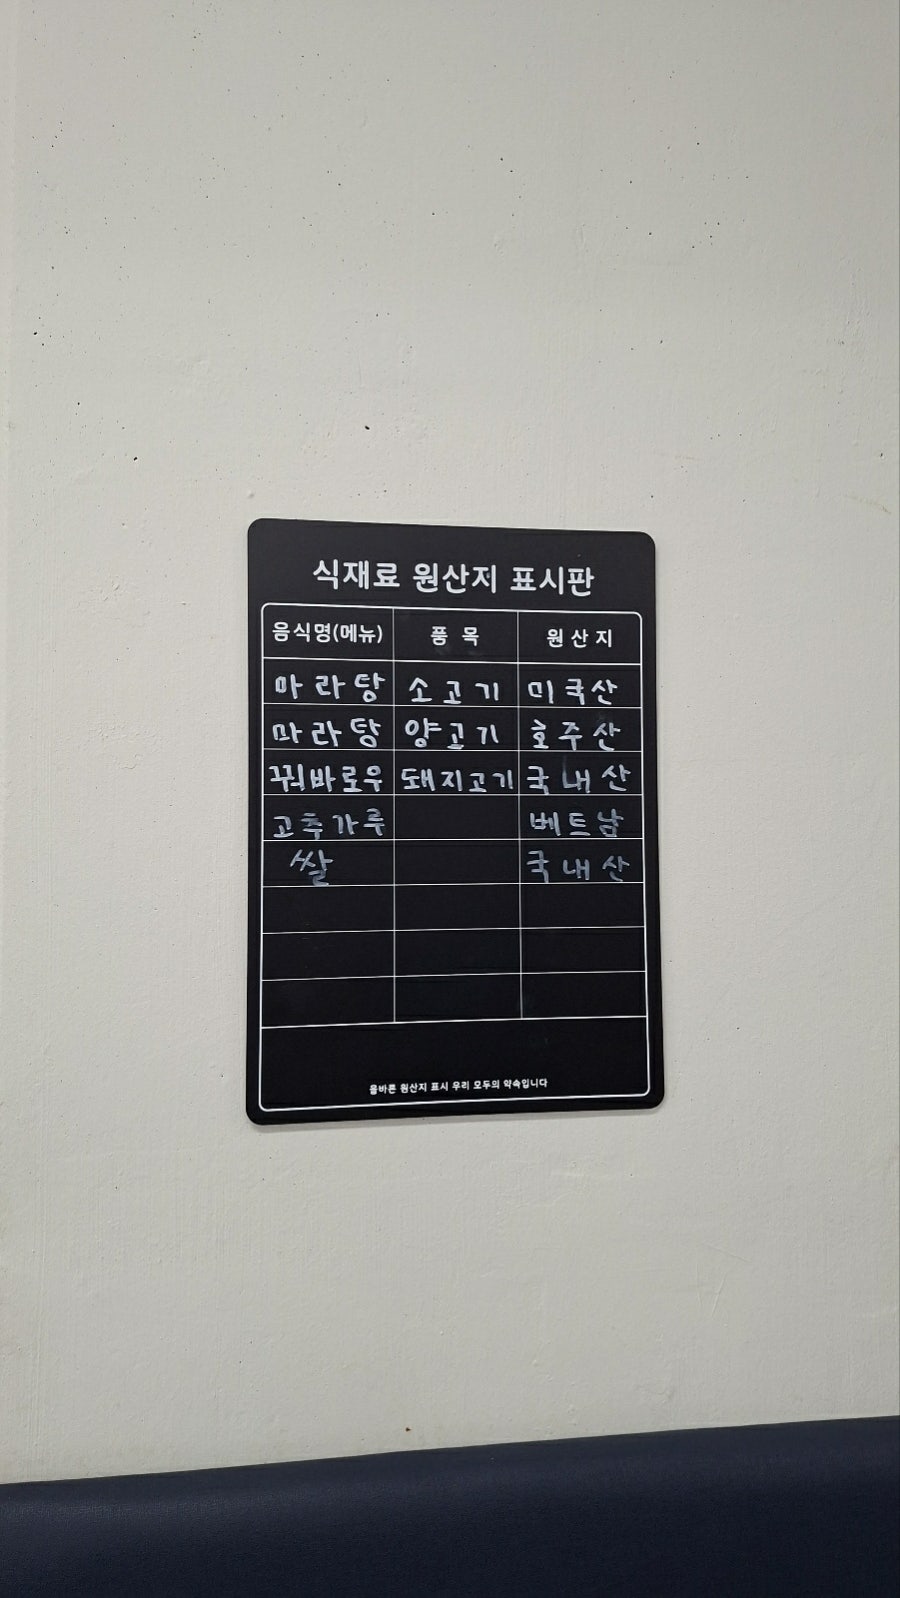 식재료 원산지 표시판
음식명(메뉴) 품 목 원 산 지
마라탕 소고기 미국산
마라탕 양고기 호주산
꿔바로우 돼지고기 국내산
고추가루 베트남
쌀 국내산
올바른 원산지 표시 우리 모두의 약속입니다